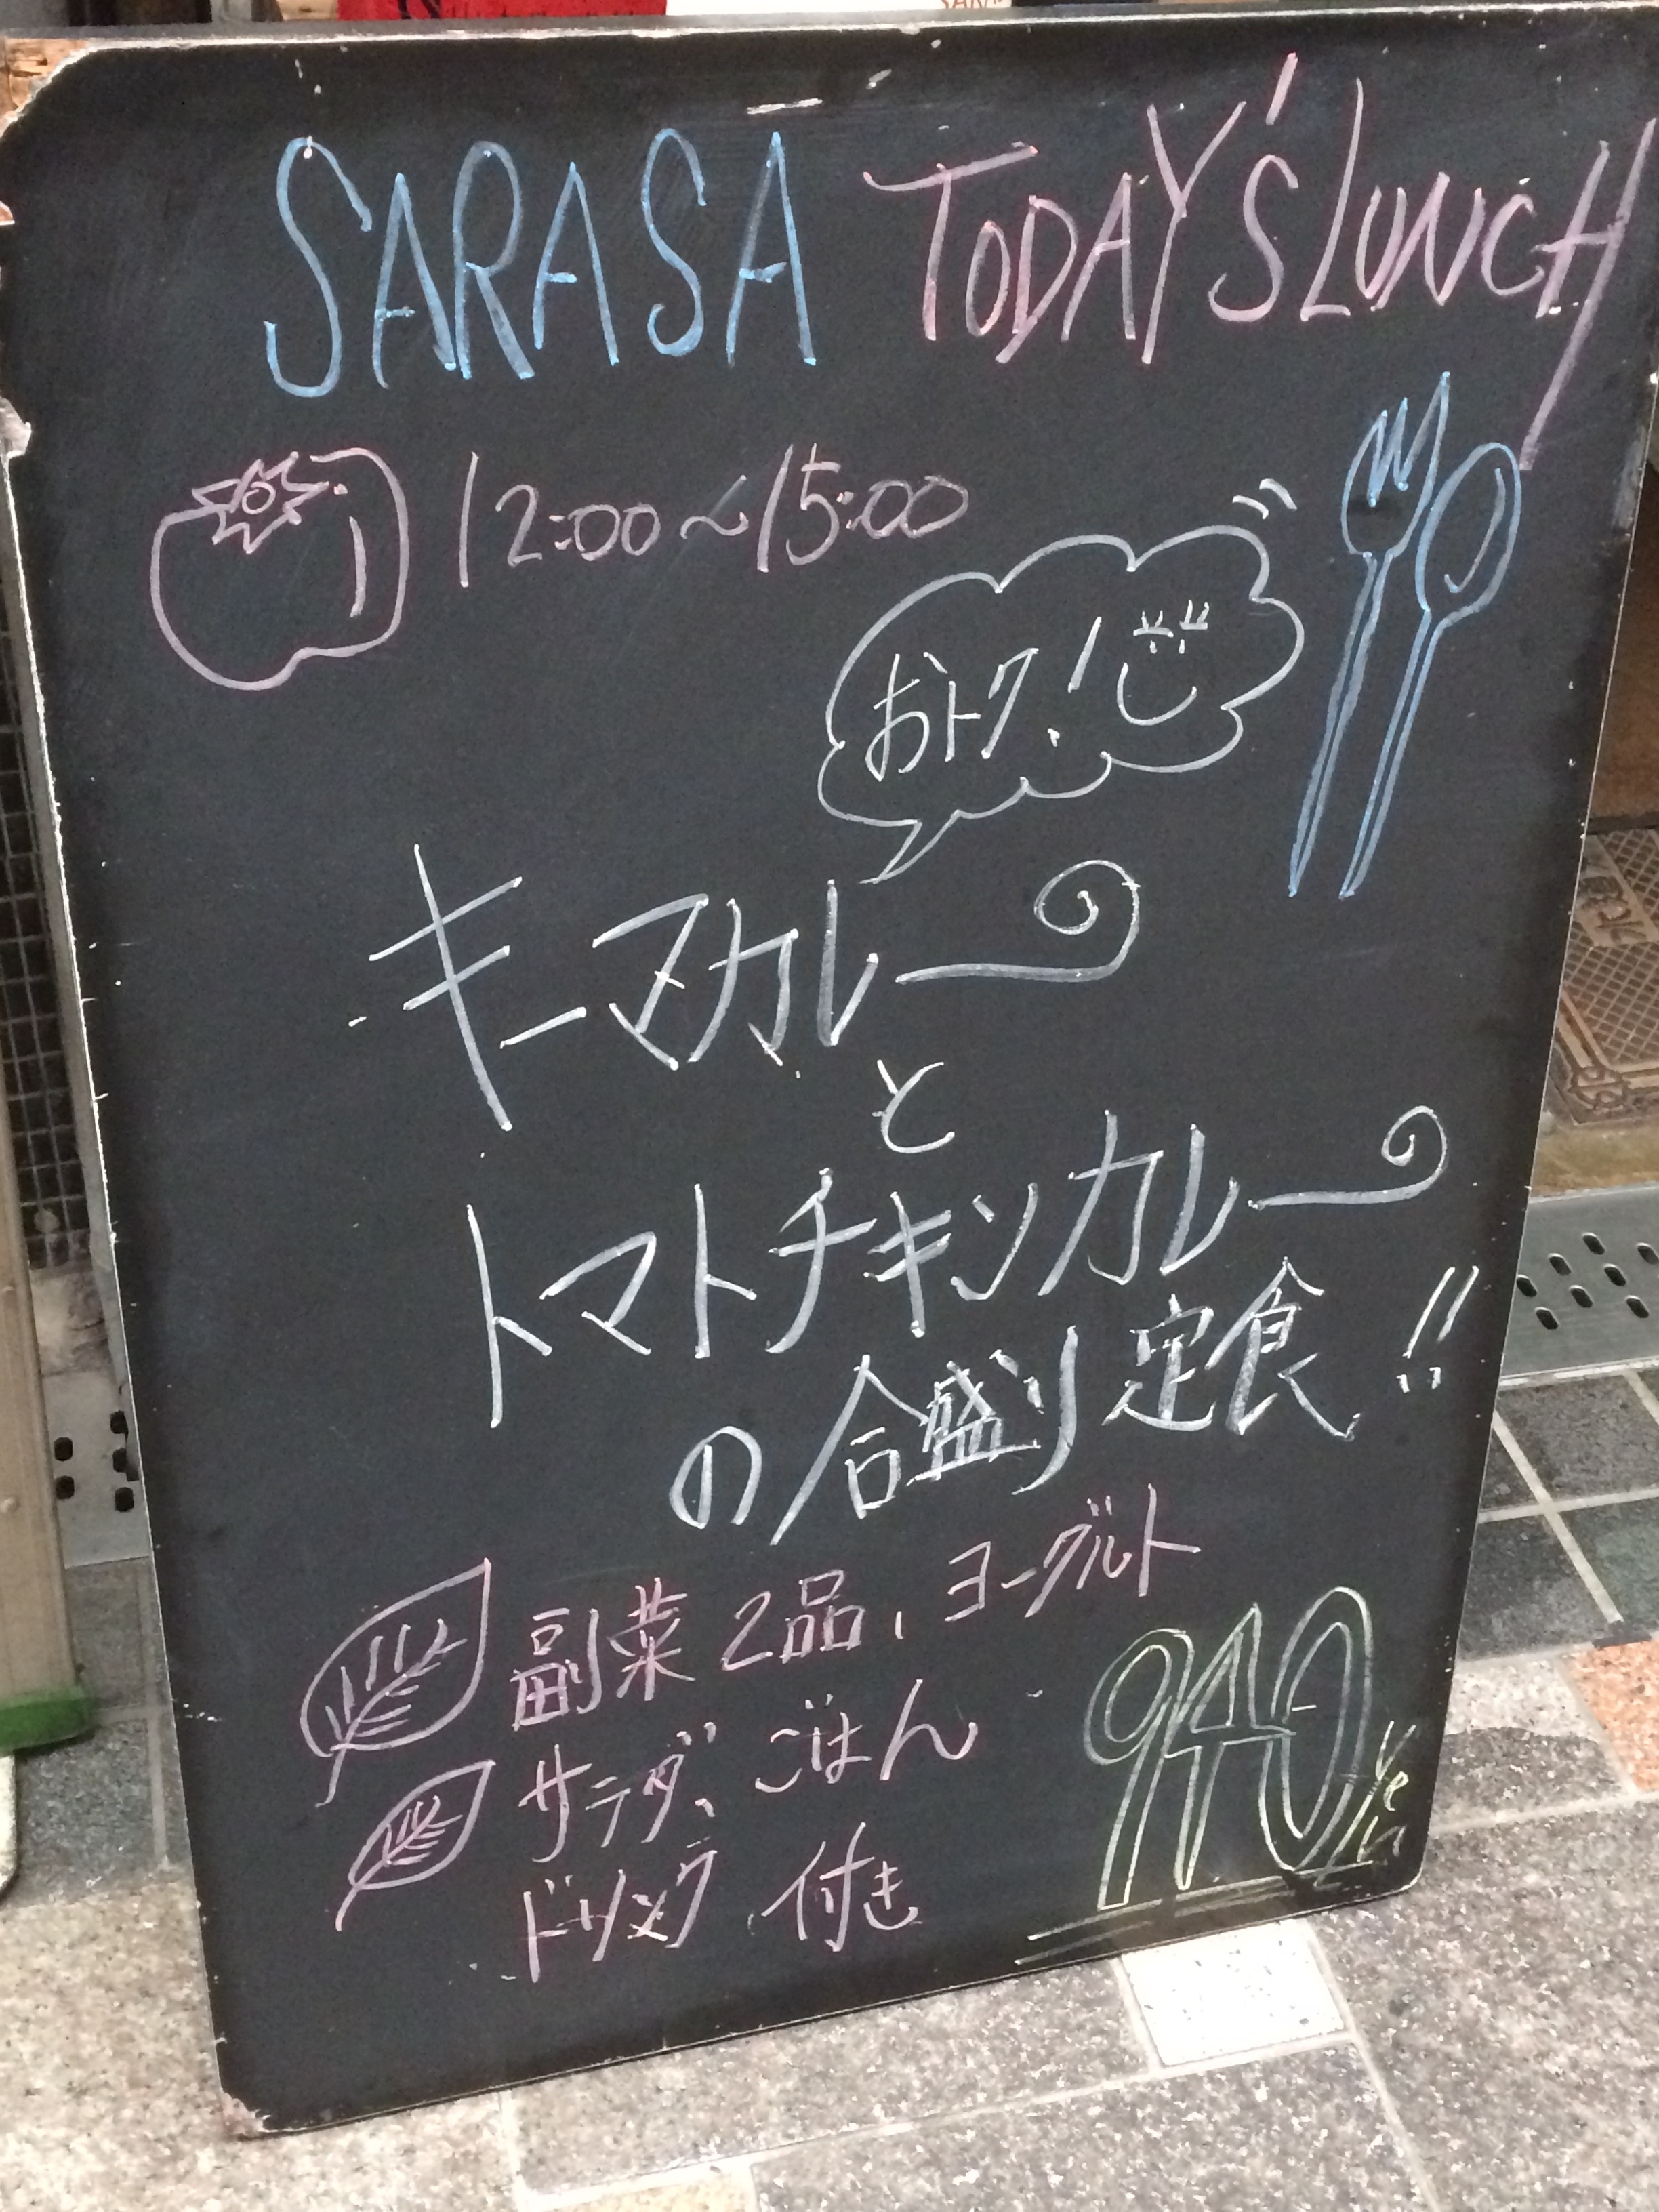 SARASA TODAY'S LUNCH
12:00〜15:00
おトク!
キーマカレー
と
トマトチキンカレー
の合盛り定食!!
副菜2品、ヨーグルト
サラダ、ごはん
ドリンク付き
940yen